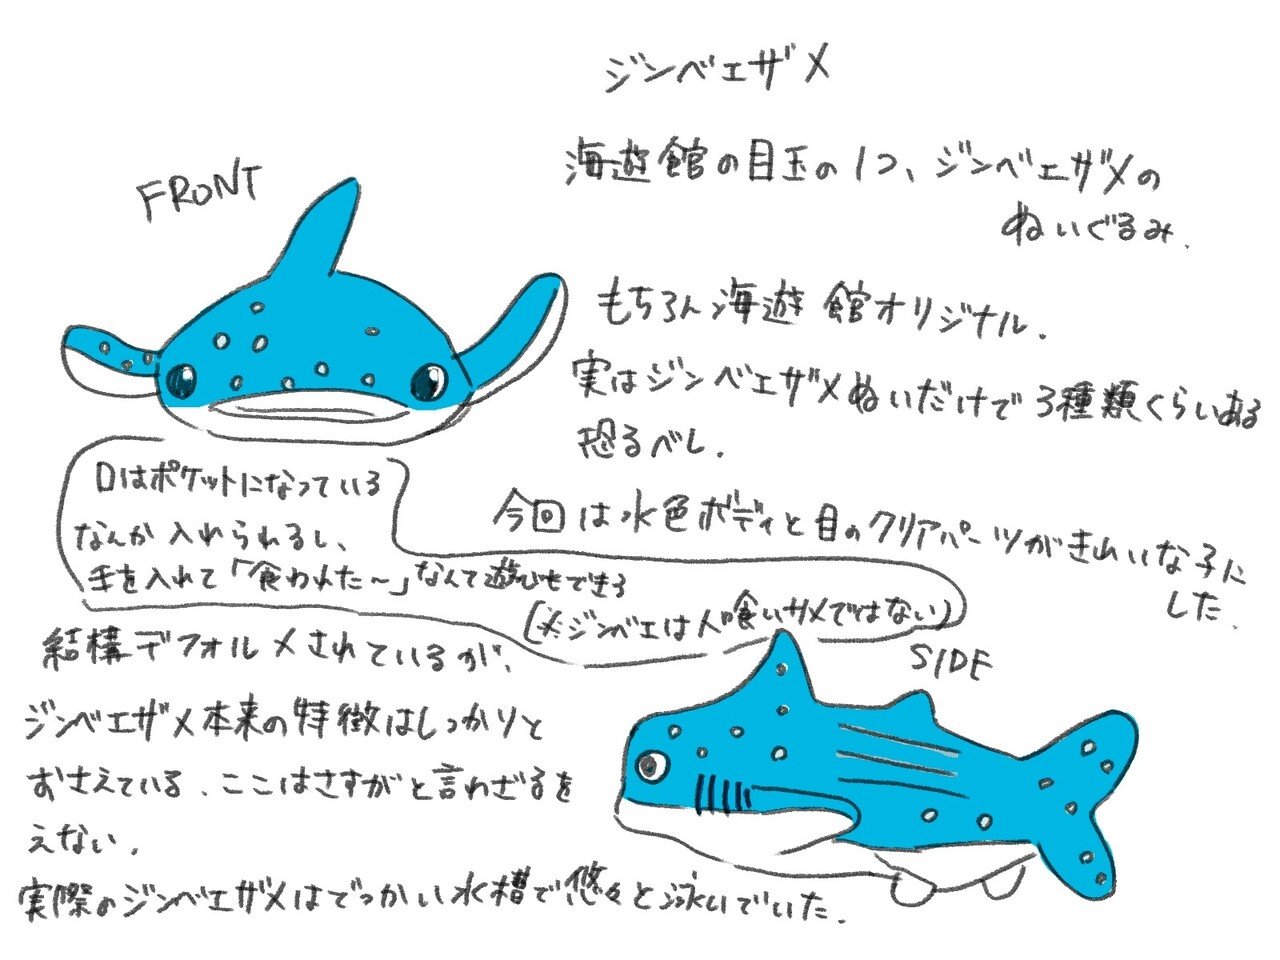 ジンベエザメ
FRONT
海遊館の目玉の1つ、ジンベエザメの
ぬいぐるみ.
もちろん海遊館オリジナル.
実はジンベエザメぬいだけで3種類くらいある
恐るべし.
口はポケットになっている
なんか入れられるし、
手を入れて「食われた〜」なんて遊びもできる
(※ジンベエは人喰いサメではない)
今回は水色ボディと目のクリアパーツがきれいな子に
した.
結構デフォルメされているが、
ジンベエザメ本来の特徴はしっかりと
おさえている.ここはさすがと言わざるを
えない.
実際のジンベエザメはでっかい水槽で悠々と泳いでいた.
SIDE